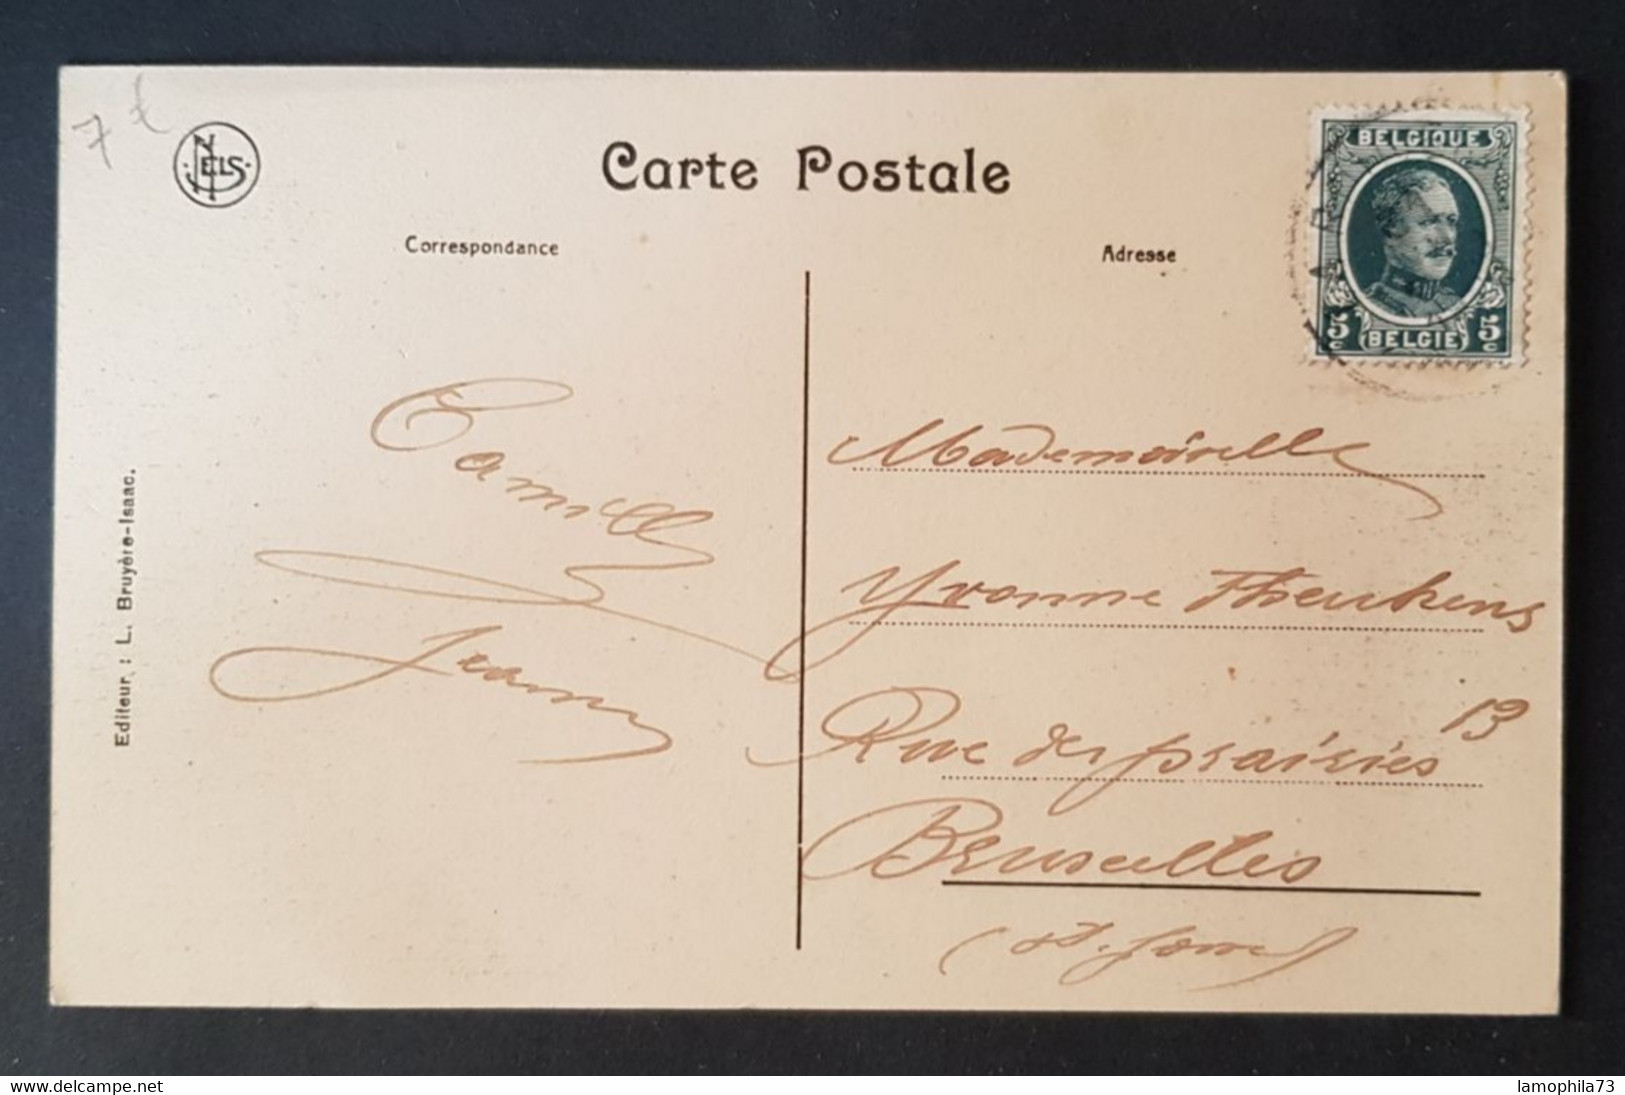 7 €
NELS
Carte Postale
Correspondance
Adresse
BELGIQUE
5c 5c
BELGIË
Editeur : L. Bruyère-Isaac.
Camille
Jeanne
Mademoiselle
Yvonne Theukens
13
Rue des prairies
Bruxelles
(St. Josse)
www.delcampe.net
lamophila73